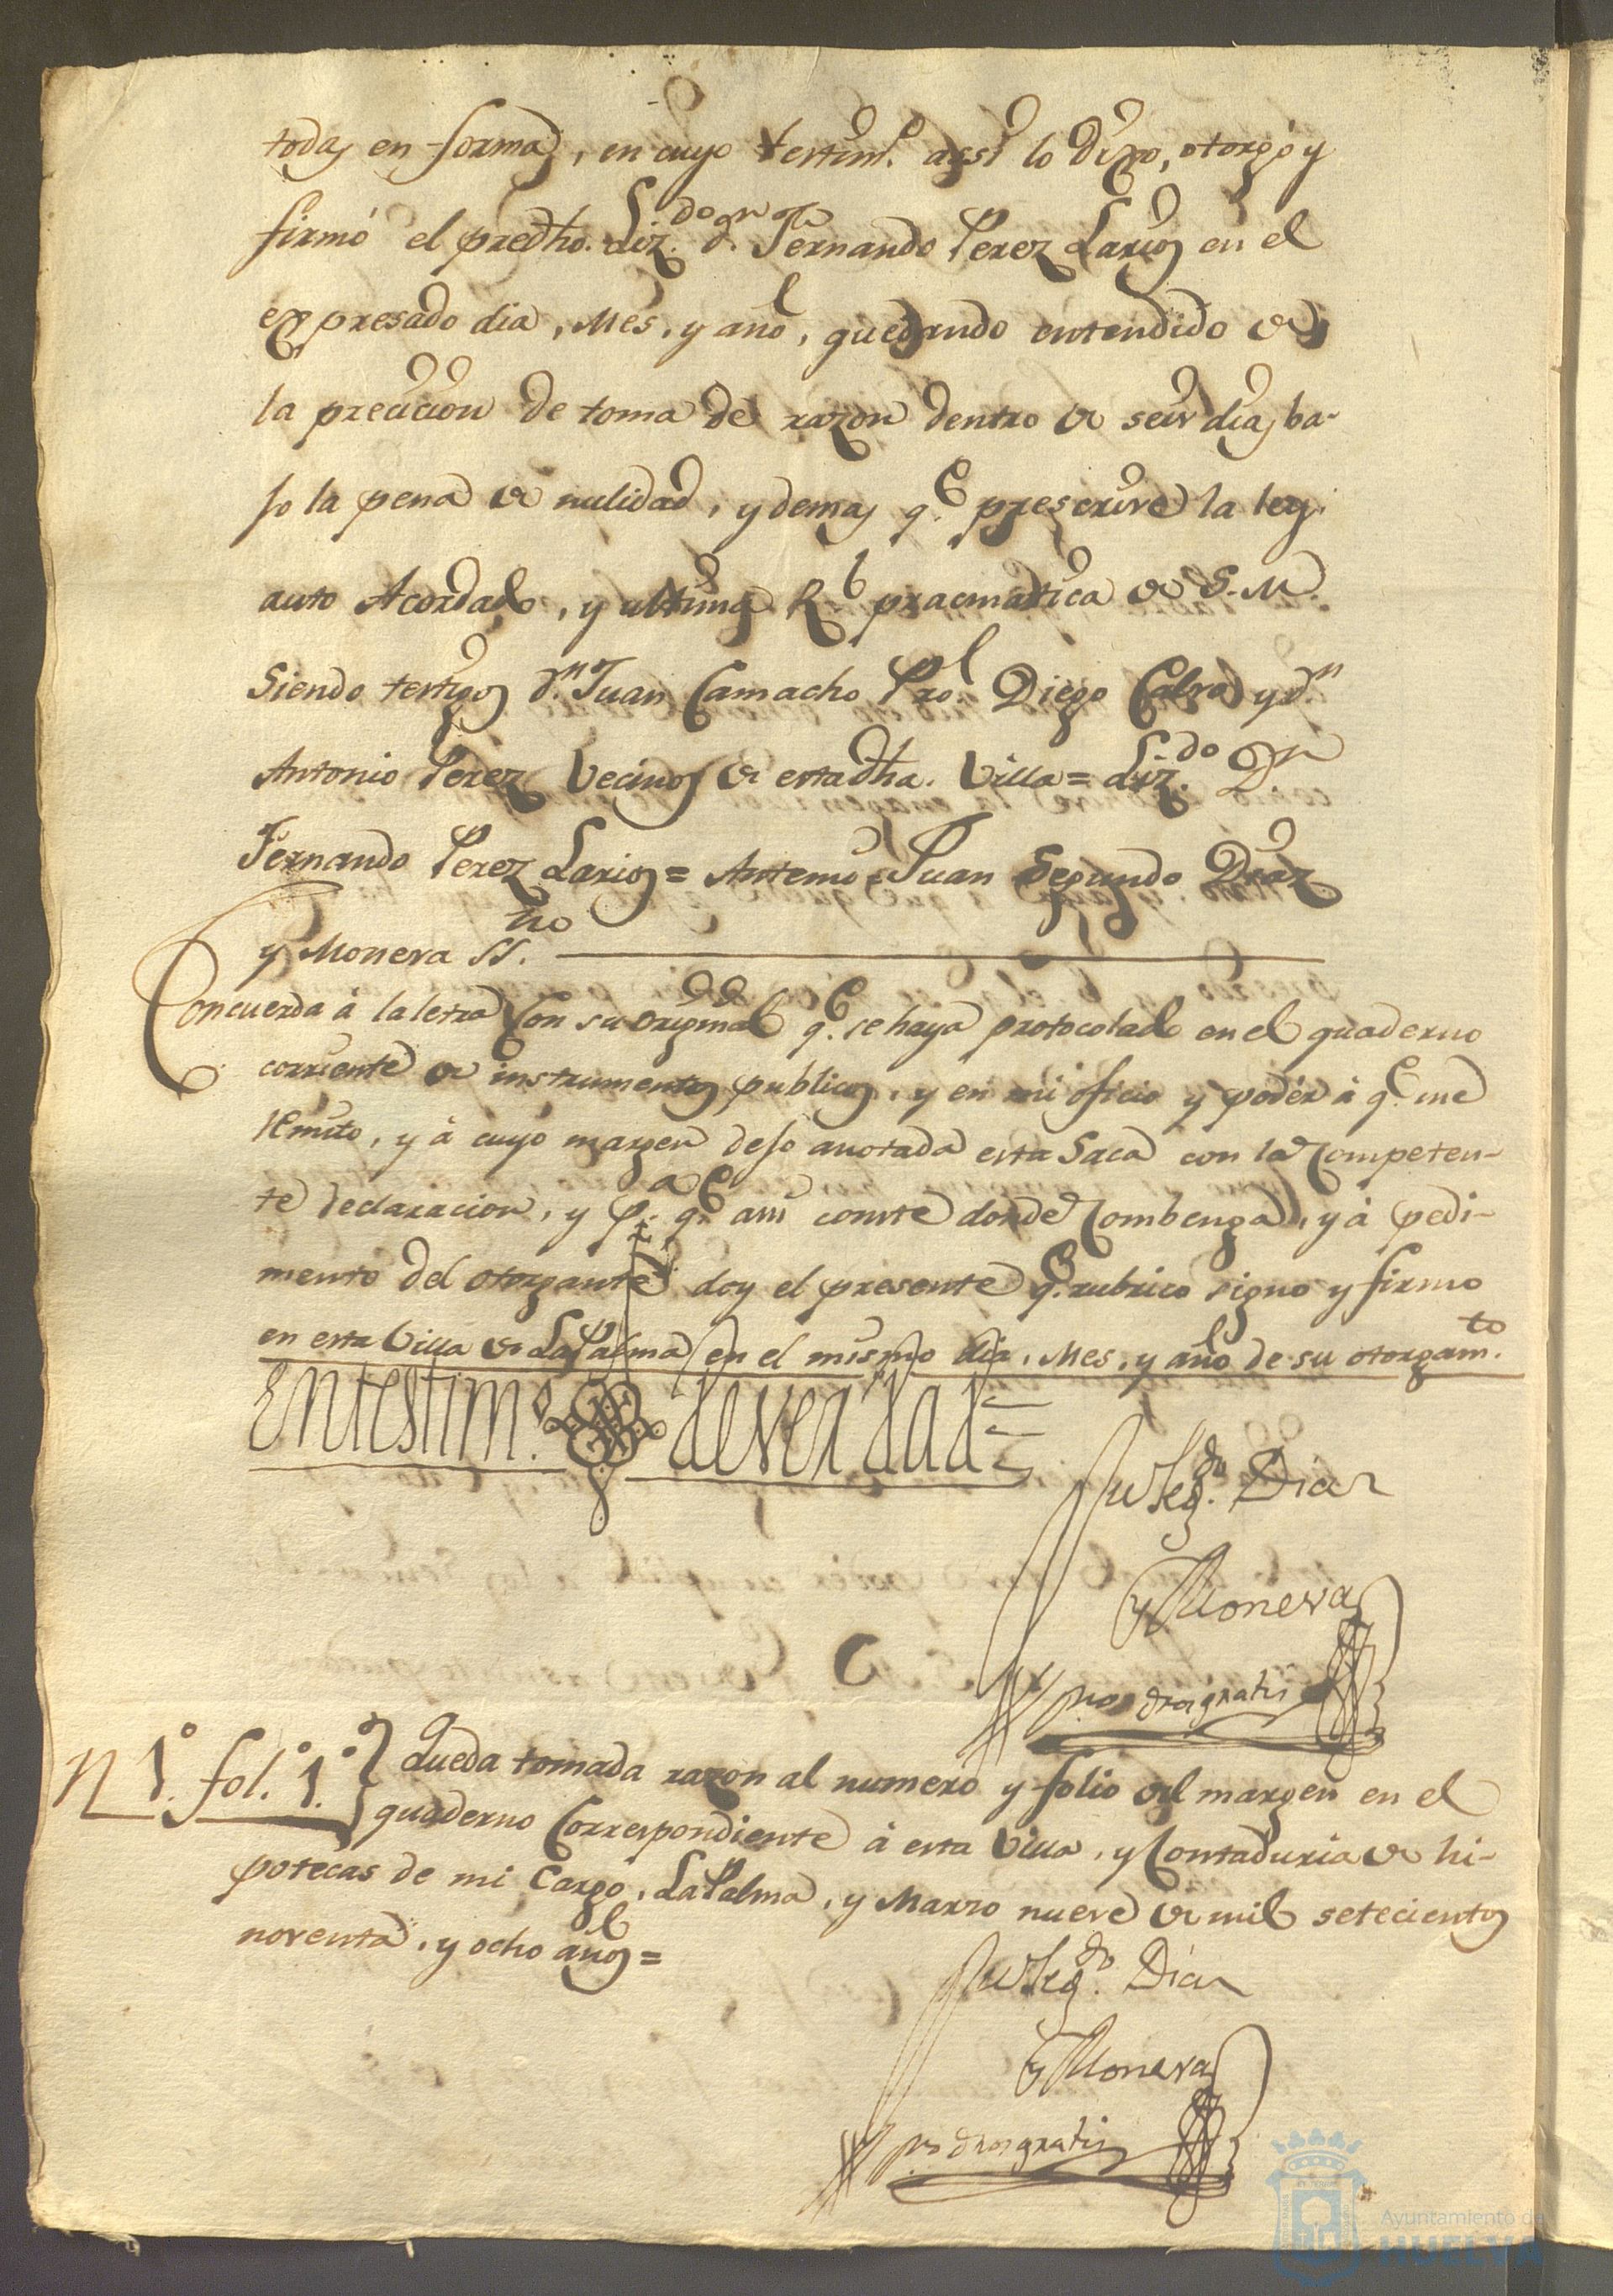 todas en forma, en cuyo testim.º assi lo dixo, otorgó y
firmó el predho. Liz.do d.n Fernando Perez Larios en el
expresado dia, Mes, y año, quedando entendido de
la precicion de toma de razon dentro de seis dias ba-
jo la pena de nulidad, y demas q.e prescrive la ley
auto Acordado, y ultima R.l pracmatica de S. M.
Siendo testigos d.n Juan Camacho Pro.l Diego Calvo y d.n
Antonio Perez Vecinos de esta dha. Villa = Liz.do D.n
Fernando Perez Larios = Antemi Juan Segundo Diaz
y Monera SS.no
Concuerda à la letra con su original q.e se haya protocolado en el quaderno
corriente de instrumentos publicos, y en mi oficio y podér à q.e me
remito, y à cuyo margen dejo anotada esta Saca con la Competen-
te declaracion, y p.a q.e assi conste donde Combenga, y à pedi-
mento del otorgante doy el presente q.e rubrico signo y firmo
en esta Villa de La Palma en el mismo dia, Mes, y año de su otorgam.to
En testim.º de verdad =
Ju Seg.do Diaz
y Monera
dros gratis
N 1.º fol.º 1.º
Queda tomada razon al numero y folio del margen en el
quaderno Correspondiente à esta Villa, y Contaduria de hi-
potecas de mi Cargo, La Palma, y Marzo nueve de mil setecientos
noventa, y ocho años =
Ju Seg.do Diaz
y Monera
dros gratis
Ayuntamiento de
HUELVA